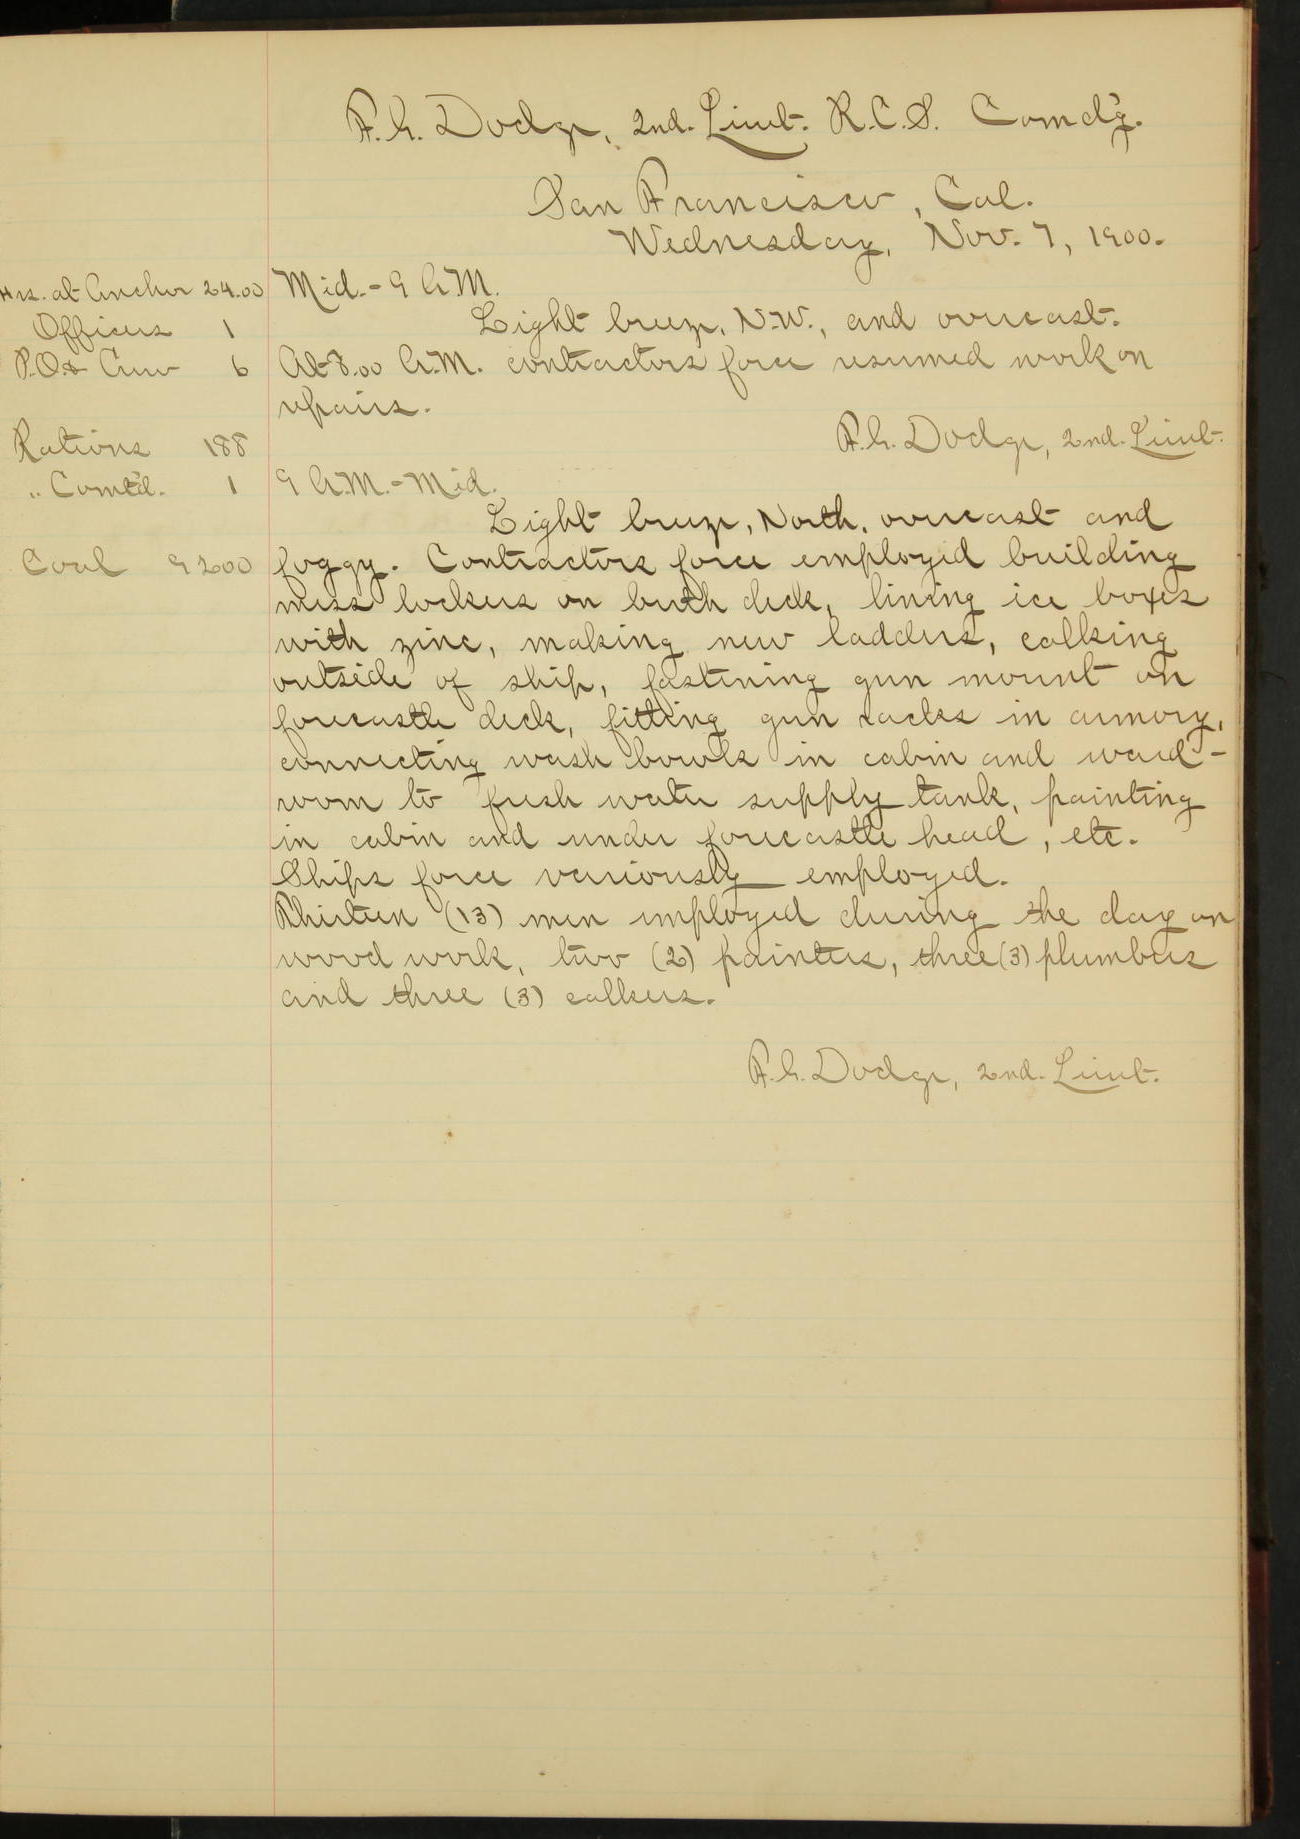 F.G. Dodge, 2nd. Lieut. R.C.S. Comd'g.
San Francisco, Cal.
Wednesday, Nov. 7, 1900.
Hrs. at Anchor 24.00
Officers 1
P.O. & Crew 6
Rations 188
" Com't'd. 1
Coal 9200
Mid.-9 A.M.
Light breeze, N.W., and overcast.
At 8.00 A.M. contractors force resumed work on
repairs.
F.G. Dodge, 2nd. Lieut.
9 A.M.-Mid.
Light breeze, North, overcast and
foggy. Contractors force employed building
mess lockers on berth deck, lining ice boxes
with zinc, making new ladders, calking
outside of ship, fastening gun mount on
forecastle deck, fitting gun racks in armory,
connecting wash bowls in cabin and ward-
room to fresh water supply tank, painting
in cabin and under forecastle head, etc.
Ships force variously employed.
Thirteen (13) men employed during the day on
wood work, two (2) painters, three (3) plumbers
and three (3) calkers.
F.G. Dodge, 2nd. Lieut.